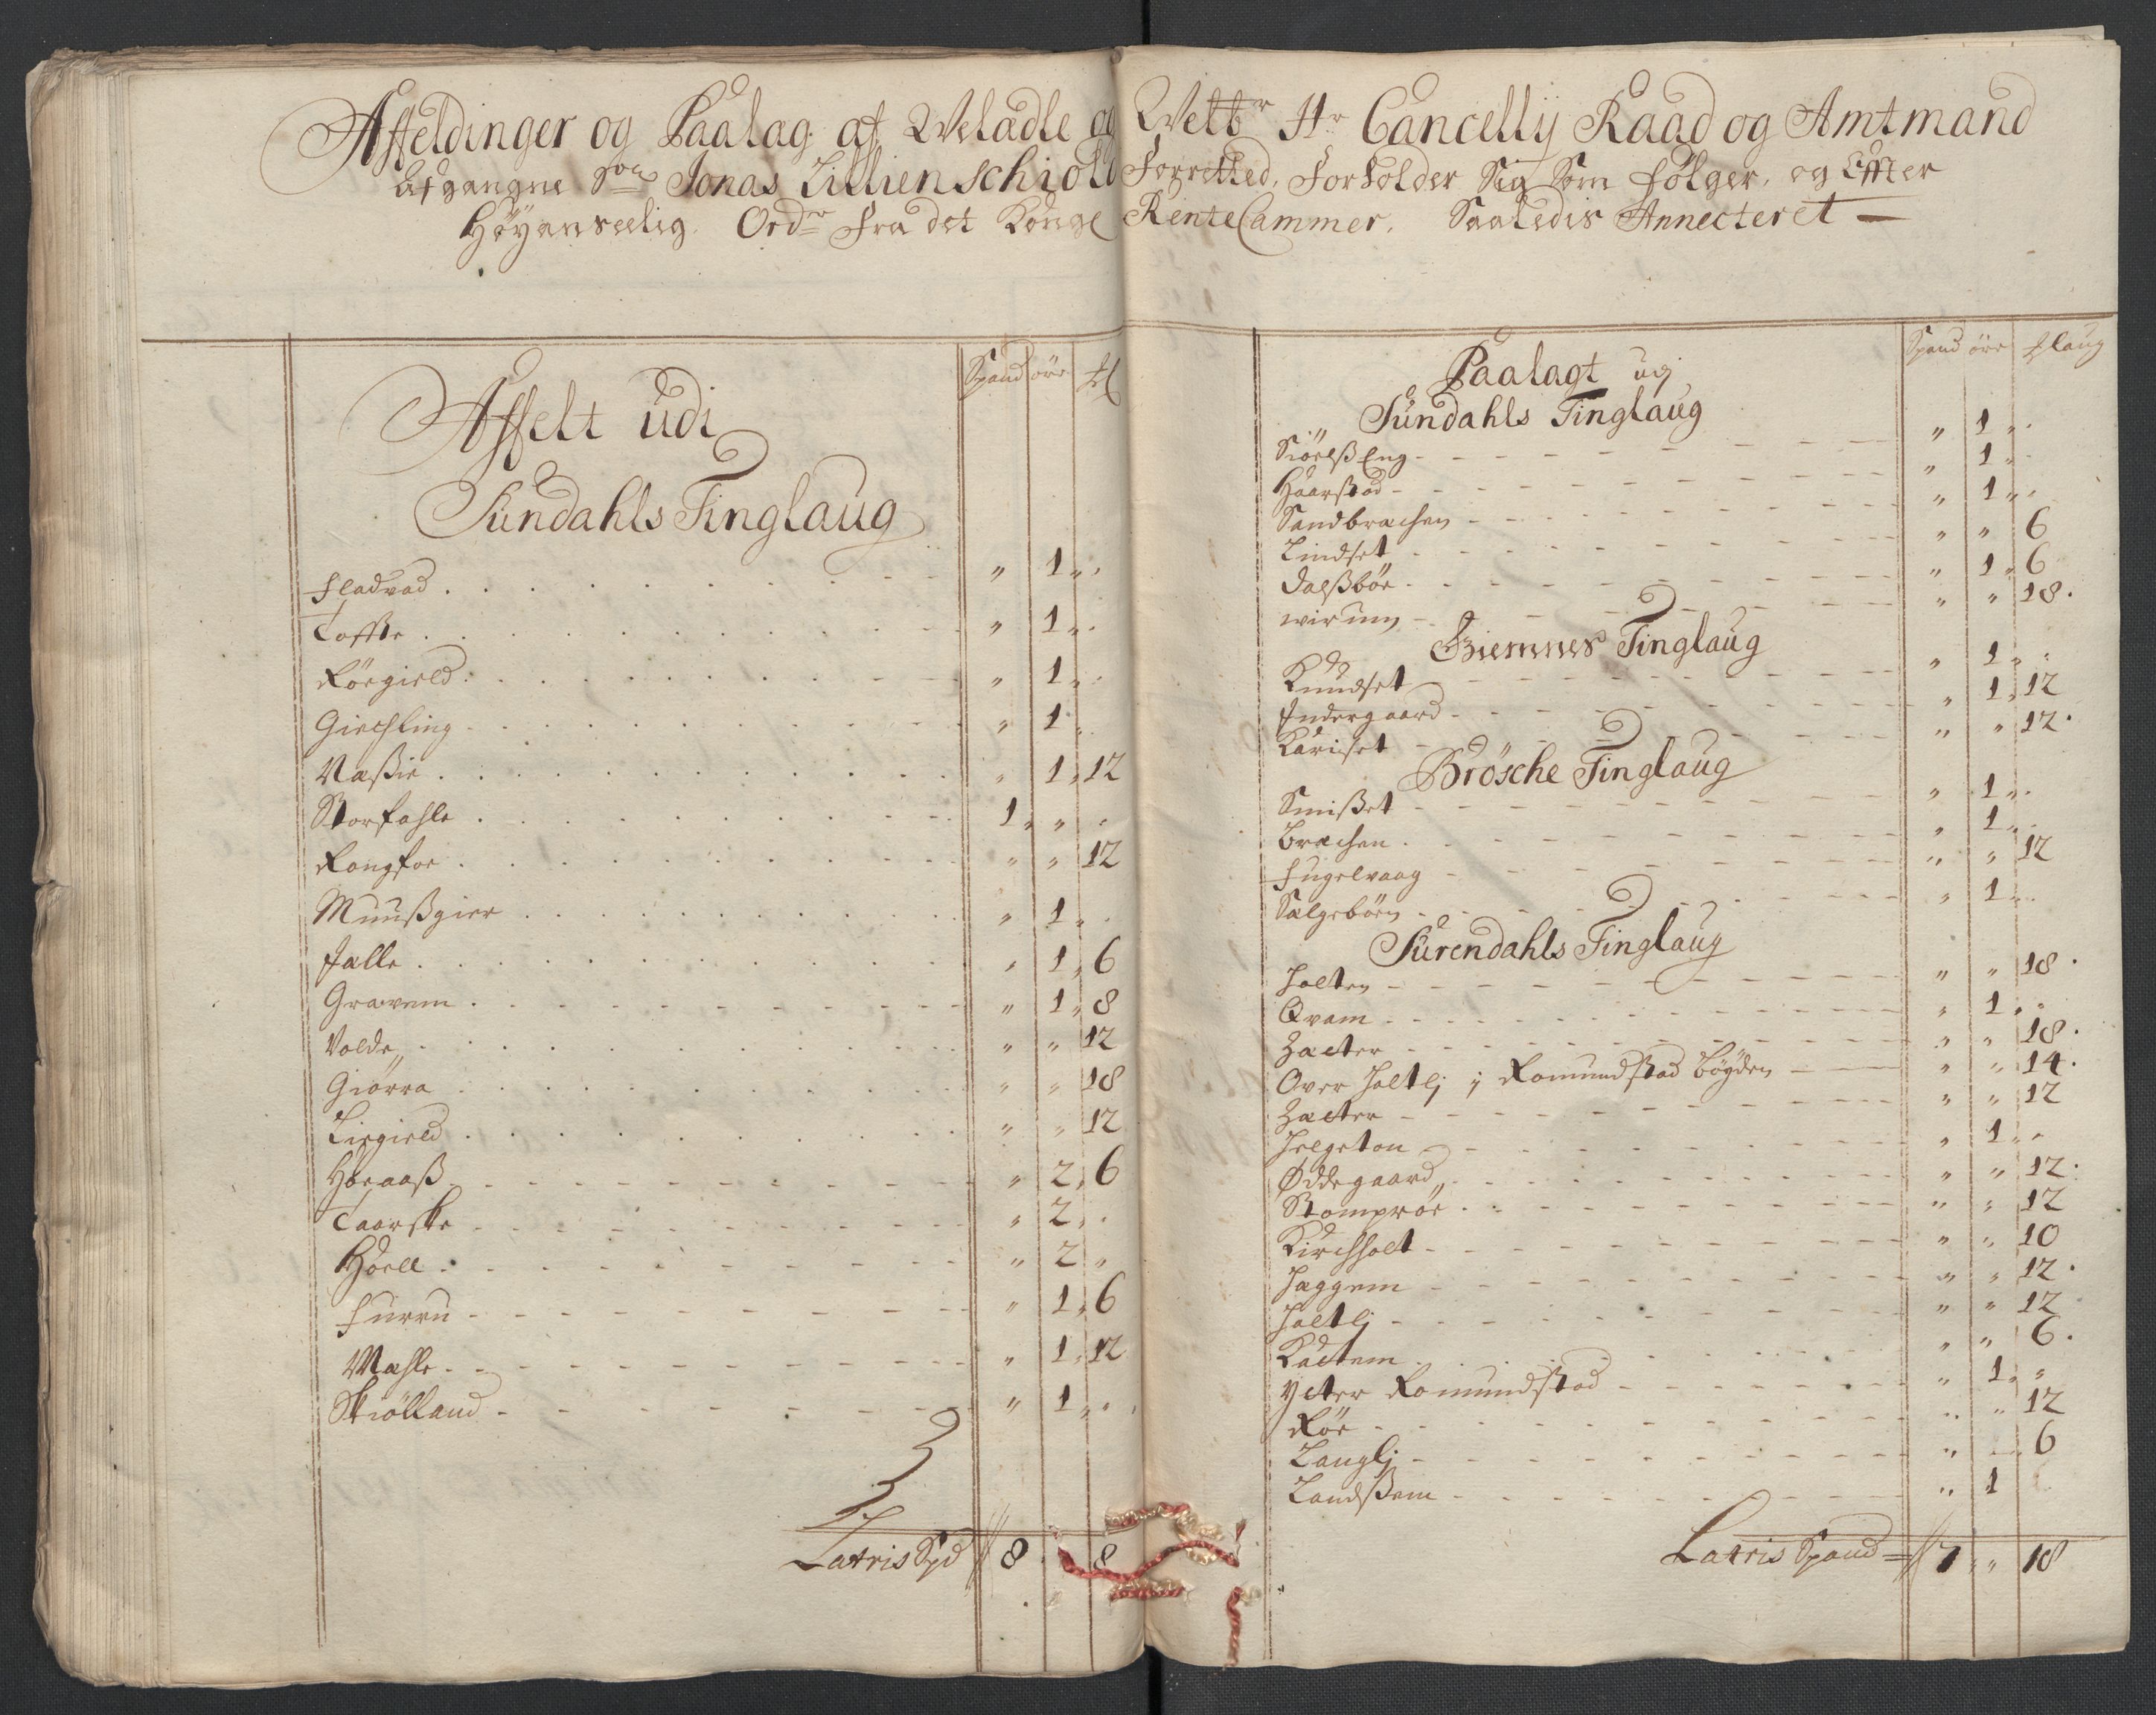 Affeldinger og Paalag af Weladle og Welbr Hr Cancellij Raad og Amtmand
Afgangne Sal Jonas Lillienschiold Forretted, Forholder Sig Som Følger, og Effter
Høyanseelig Ordre fra det Kongl RenteCammer, Saaledis Annecteret —
Affelt udi
Sundahls Tinglaug
Spand øre
Fladvad " 1 "
Toffte " 1 "
Røegield " 1 "
Giechling " 1 "
Naßie " 1 12
Storfahle 1 " "
Rongfoe " " 12
Muußgier " 1 "
Falle " 1 6
Gravem " 1 8
Volde " " 12
Giørra " " 18
Liegield " " 12
Hoeaaß " 2 6
Taarske " 2 "
Hoell " 2 "
Furru " 1 6
Mahle " 1 12
Skiølland " 1 "
Latris Spd 8 8
Spand øre laug
Paalagt udj
Sundahls Tinglaug
Siøelß Eng " 1 "
Haarstad " 1 "
Sandbrachen " 1 "
Lindset " " 6
Dalßbøe " 1 6
wirum " " 18
Giemnes Tinglaug
Knudset " 1 "
Indergaard " 1 12
Kariset " " 12
Brösche Tinglaug
Smißet " 1 "
Brechen " 1 "
Fugelvaag " " 12
Salgebøen " 1 "
Surendahls Tinglaug
Holten " " 18
Qvam " 1 "
Zæter " " 18
Over Holtlj i Romundstad Bøyden " " 14
Zæter " " 12
Helgeton " 1 "
Øddegaard " " 12
Stomprøe " " 12
Kirchholt " " 10
Haggem " " 12
Holtlj " " 12
Kactem " " 6
Yter Romundstad " 1 "
Røe " " 12
Langlj " — 6
Landßem " 1
Latris Spand 7 " 18